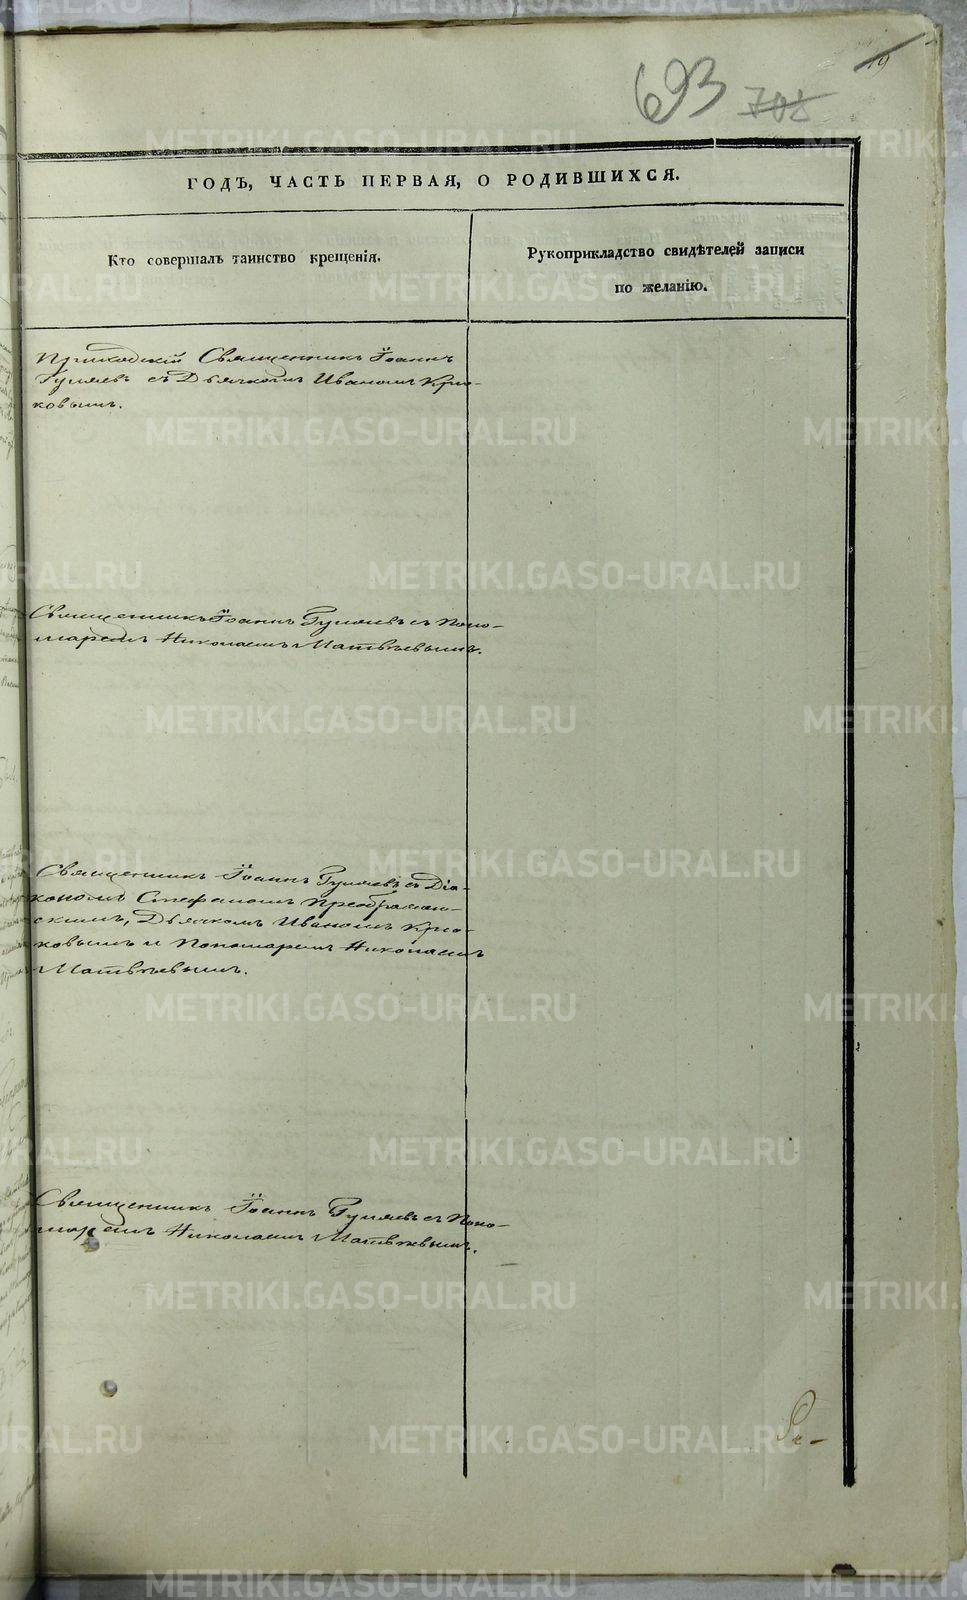 19
693 708
ГОДЪ, ЧАСТЬ ПЕРВАЯ, О РОДИВШИХСЯ.
Кто совершалъ таинство крещенія.
Рукоприкладство свидѣтелей записи
по желанію.
Приходскій Священникъ Іоаннъ
Гуляевъ съ Дьячкомъ Иваномъ Крю-
ковымъ.
Священникъ Іоаннъ Гуляевъ съ Поно-
маремъ Николаемъ Матвѣевымъ.
Священникъ Іоаннъ Гуляевъ съ Діа-
кономъ Стефаномъ Преображен-
скимъ, Дьячкомъ Иваномъ Крю-
ковымъ и Пономаремъ Николаемъ
Матвѣевымъ.
Священникъ Іоаннъ Гуляевъ съ Поно-
маремъ Николаемъ Матвѣевымъ.
METRIKI.GASO-URAL.RU